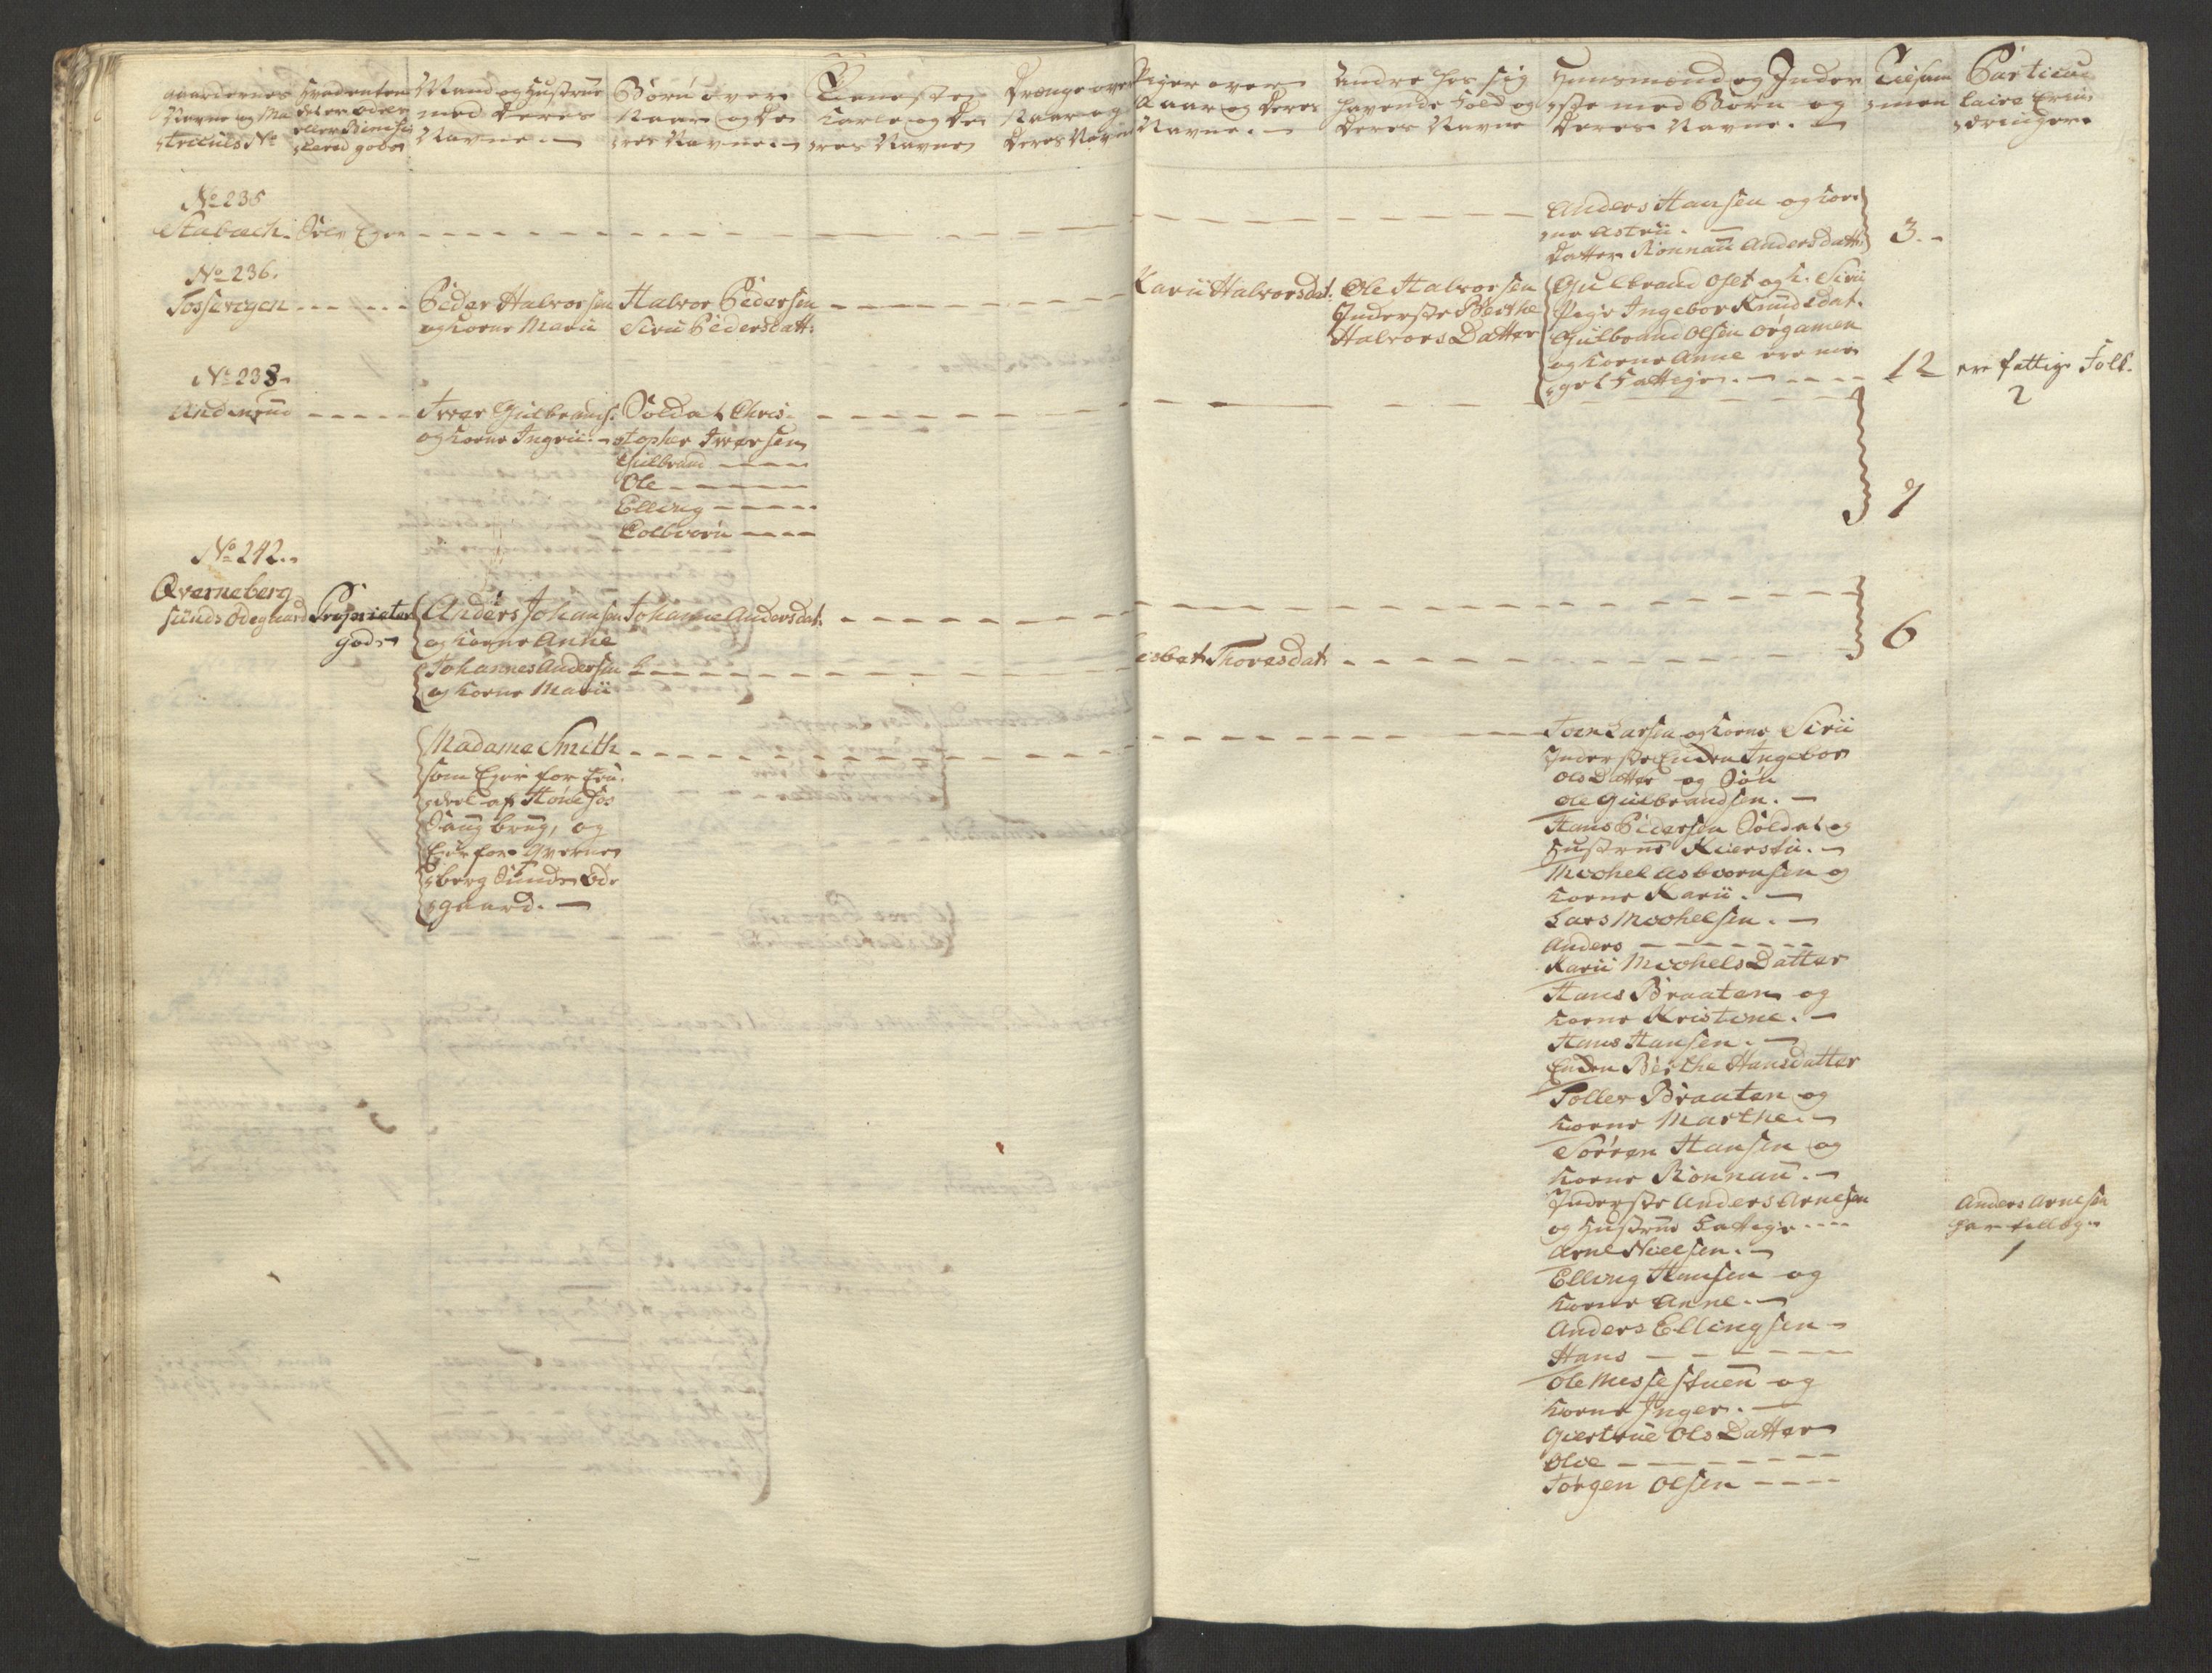 Gaardernes
Navne og Ma
triculs No
Hvad enten
det er odel
eller Benifi
cered gods
Mand og Hustrue
med deres
Navne.
Børn over
Aar og de
res Navne.
Tieneste
Karle og de
res Navne
Drenge over
Aar og
deres Navne
Piger over
Aar og deres
Navne.
Andre hos sig
havende Folk og
deres Navne
Huusmænd og Inder
ste med Børn og
deres Navne.
Tilsam
men
Particu
laire Erin
dringer.
No 235
Stabæch.
Anders Hansen og Ko
ne Astrii.
datter Rønnau Andersdatt:
3.
No 236.
Tossevigen
Peder Halvorsen
og Kone Marii
Halvor Pedersen
Sirii Pedersdatt:
Karii Halvorsdat:
Ole Halvorsen
Inderste Berthe
Halvors Datter
Gulbrand Oset og K. Sirii
Pige Ingebor Knudsdat.
Gulbrand Olsen
og Kone Anne ere me
get Fattige.
12
ere fattige Folk.
2
No 238
Andersrud
Iver Gulbrands:
og Kone Ingrii.
Soldat Chris
topher Iversen
Gulbrand
Ole
Elling
Colbiørn
7
No 242.
Qverneberg
sunds Ødegaard
Proprietær
gods
Anders Johansen
og Kone Anne
Johannes Andersen
og Kone Marii
Johanne Andersdat:
Lisbet Thoresdat:
6
Madame Smith
som Ejer for En
deel af Hønefos
Saugbrug, og
Ejer for Qverne
berg Sunds Øde
gaard.
Joen Larsen og Kone Sirii
Inderste Enken Ingebor
Ols Datter og Søn
Ole Gulbrandsen.
Hans Pedersen Soldat og
Hustrue Kiersti.
Michel Asbiørnsen og
Kone Karii.
Lars Michelsen.
Anders
Karii Michels Datter
Hans Braaten og
Kone Kristine.
Hans Hansen.
Enken Berthe Hansdatter
Toller Braaten og
Kone Marthe.
Sørren Hansen og
Kone Rønnau.
Inderste Anders Arnesen
og Hustrue Fattige
Arne Nielsen.
Elling Hansen og
Kone Anne.
Anders Ellingsen
Hans
Ole Messestuen og
Kone Inger.
Giertrue Ols Datter
Olve
Jørgen Olsen
Anders Arnesen
1